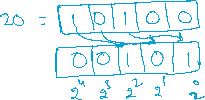 20 = 1 0 1 0 0
0 0 1 0 1
2⁴ 2³ 2² 2¹ 2⁰